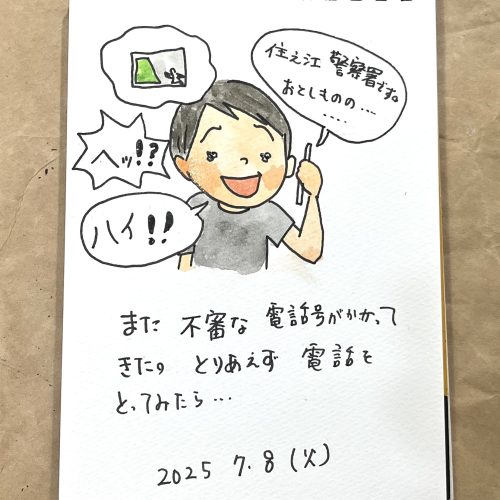 住之江 警察署です。
おとしものの....
....
ヘッ!?
ハイ!!
また 不審な 電話号がかかって
きた。 とりあえず 電話を
とってみたら...
2025 7.8 (火)